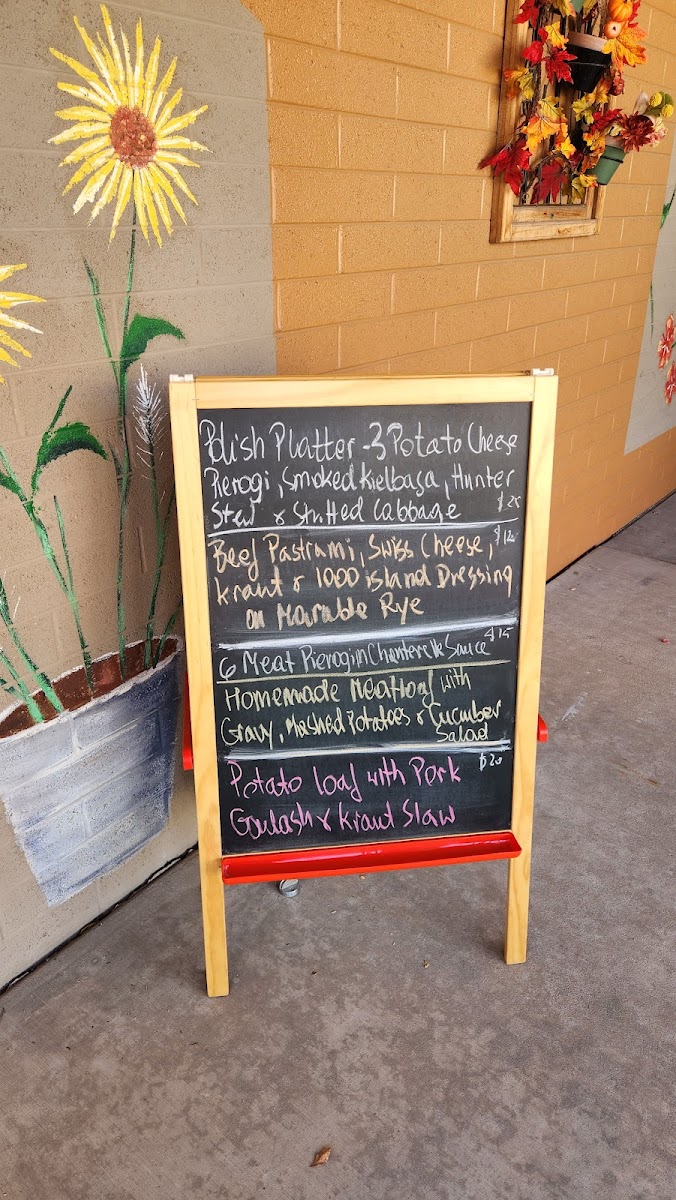 Polish Platter - 3 Potato Cheese
Pierogi, Smoked Kielbasa, Hunter
Stew & Stuffed Cabbage $25
Beef Pastrami, Swiss Cheese, $12
kraut & 1000 island Dressing
on Marable Rye
6 Meat Pierogi in Chanterelle Sauce $15
Homemade Meatloaf with
Gravy, Mashed Potatoes & Cucumber
Salad
Potato loaf with Pork $20
Goulash & Kraut Slaw